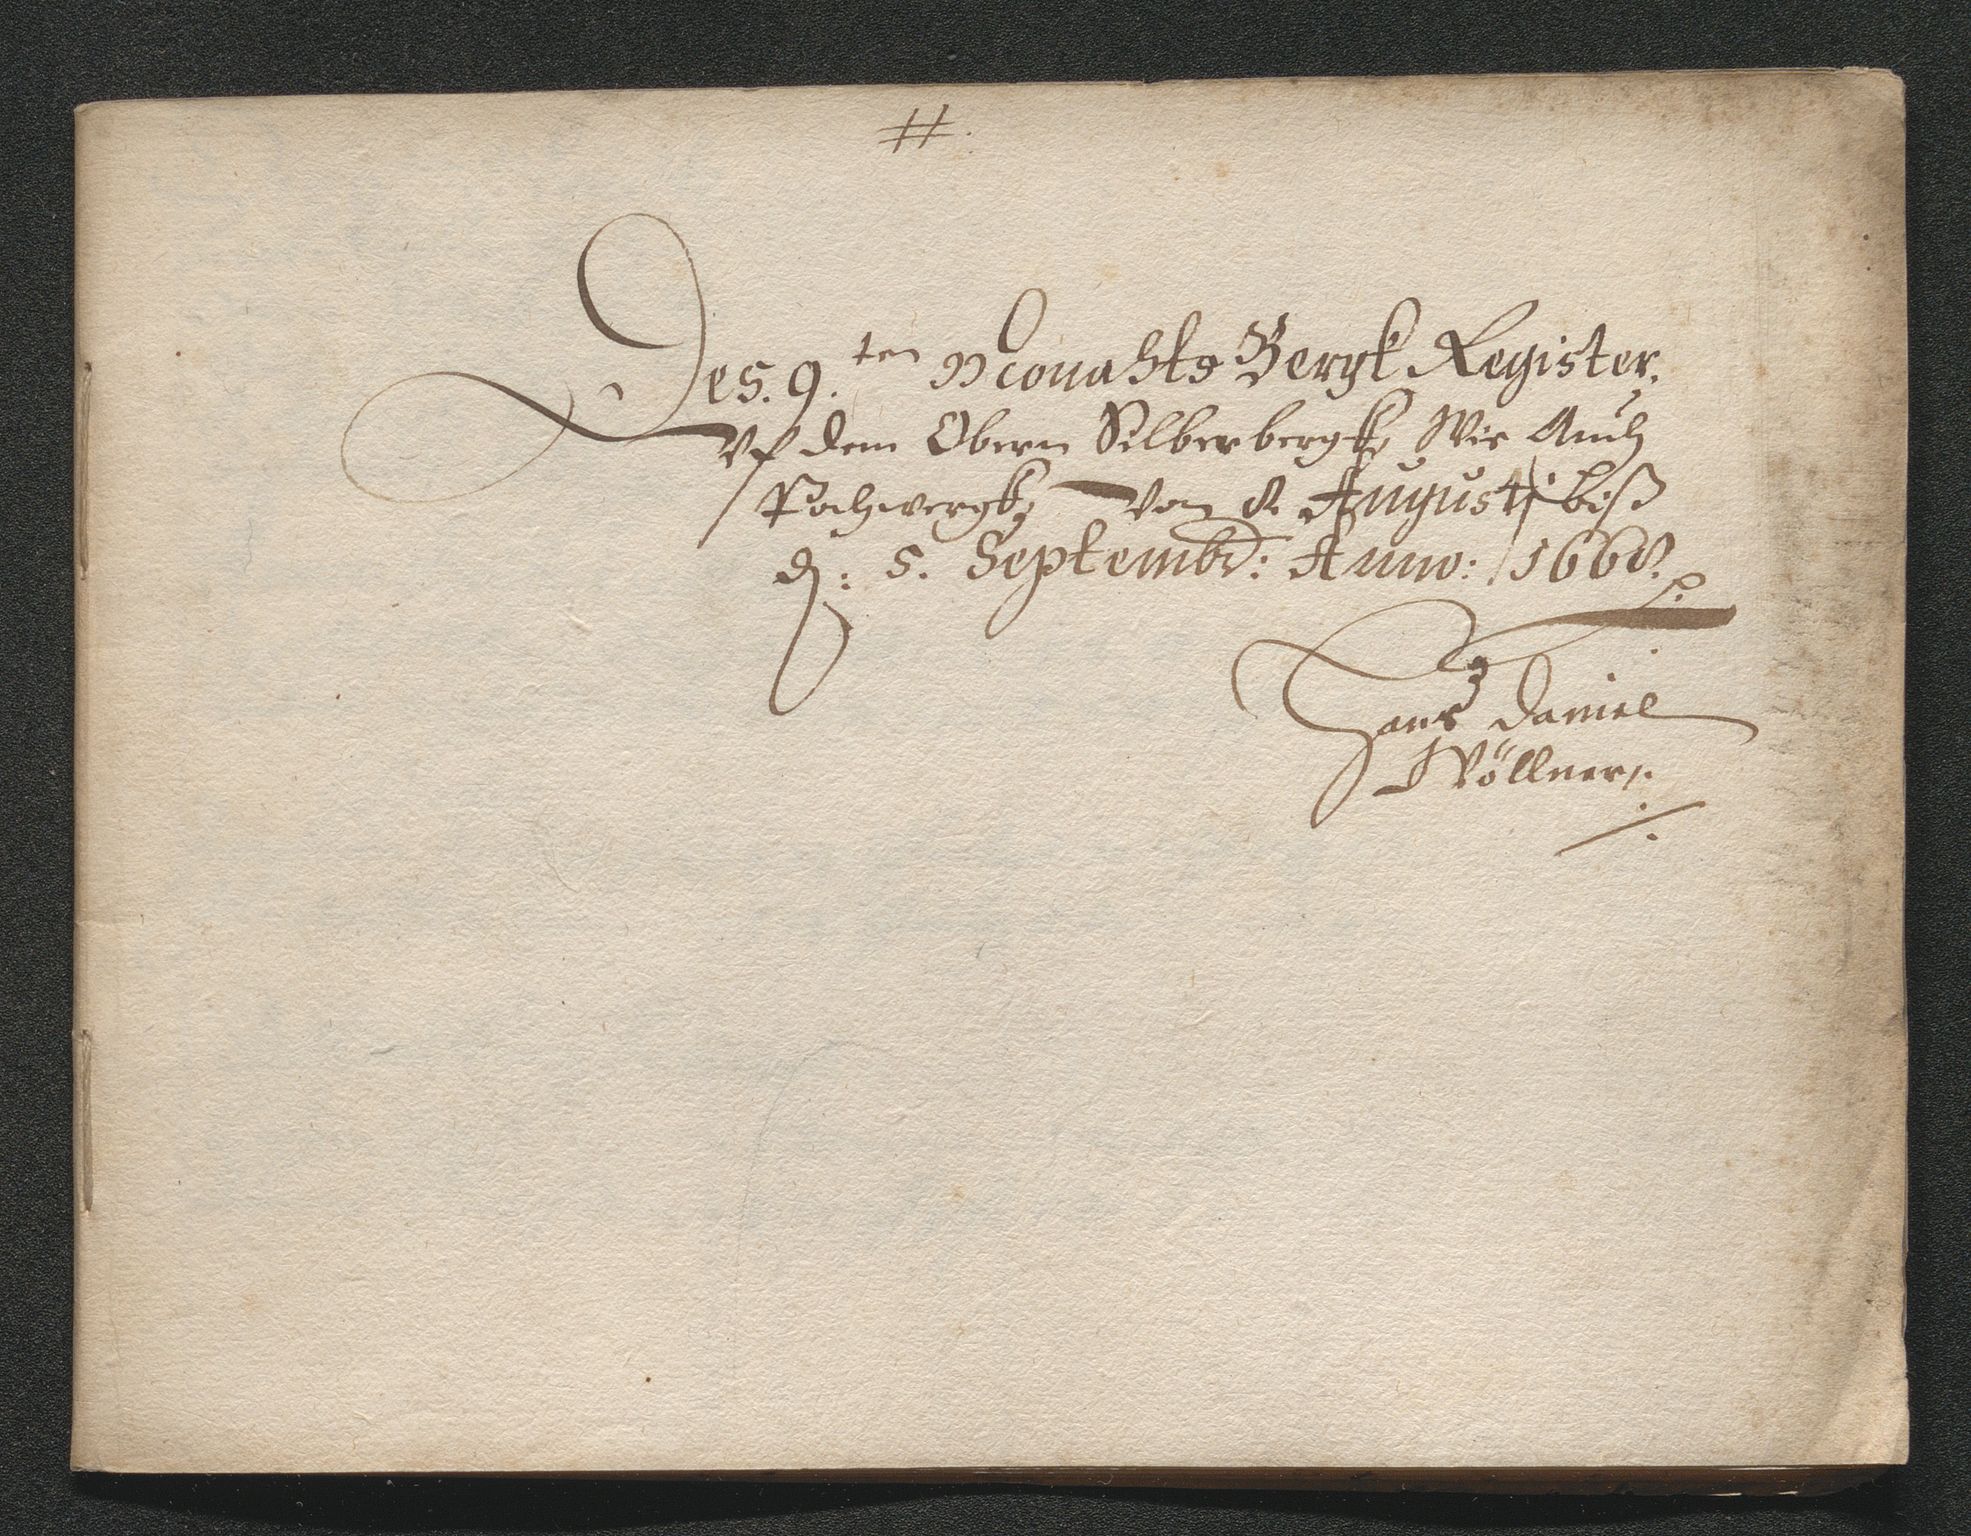 #.
Des. 9.ten Monahts Bergk Register.
Vf dem Obern Silberbergk, Wie Auch
Pochwergk, Von 8. Augusti biß
d: 5. Septembr: Anno: 1668.
Hans Daniel
Wöllner